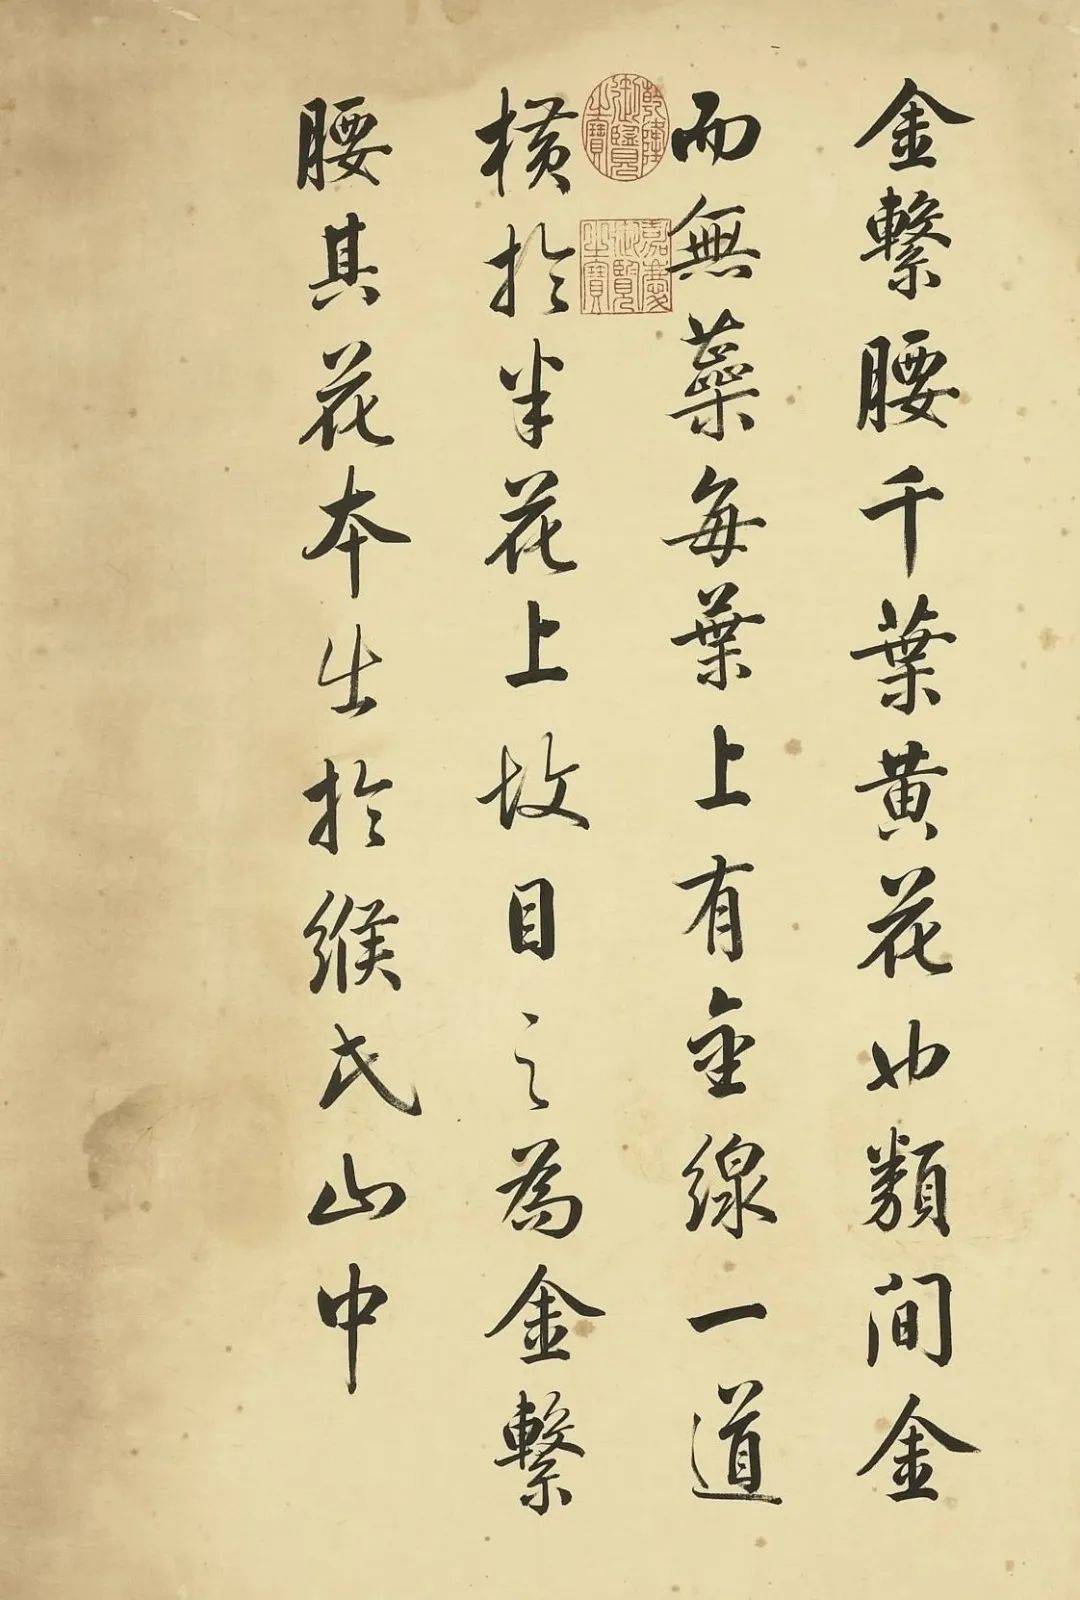 金繫腰千葉黃花也類間金
而無蘂每葉上有金線一道
橫於半花上故目之為金繫
腰其花本出於緱氏山中
乾隆御覽之寶
嘉慶御覽之寶